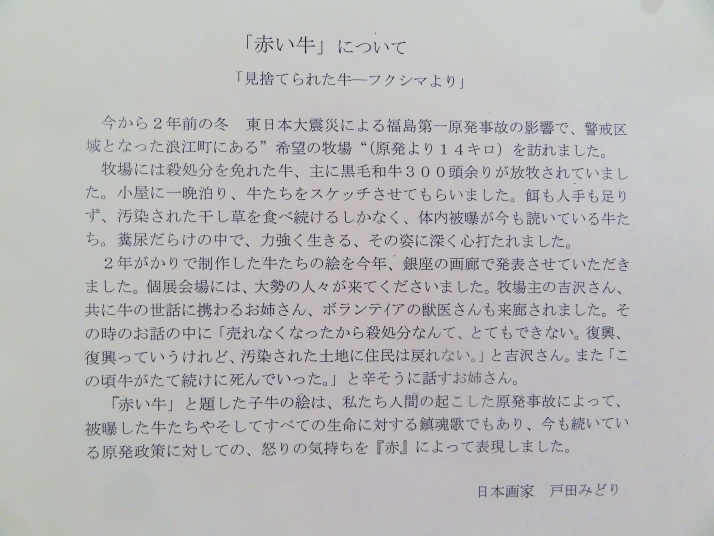 「赤い牛」について
「見捨てられた牛―フクシマより」
今から2年前の冬　東日本大震災による福島第一原発事故の影響で、警戒区
域となった浪江町にある”希望の牧場“(原発より14キロ）を訪れました。
牧場には殺処分を免れた牛、主に黒毛和牛300頭余りが放牧されていまし
た。小屋に一晩泊り、牛たちをスケッチさせてもらいました。餌も人手も足り
ず、汚染された干し草を食べ続けるしかなく、体内被曝が今も読いている牛た
ち。糞尿だらけの中で、力強く生きる、その姿に深く心打たれました。
２年がかりで制作した牛たちの絵を今年、銀座の画廊で発表させていただき
ました。個展会場には、大勢の人々が来てくださいました。牧場主の吉沢さん、
共に牛の世話に携わるお姉さん、ボランティアの獣医さんも来廊されました。そ
の時のお話の中に「売れなくなったから殺処分なんて、とてもできない。復興、
復興っていうけれど、汚染された土地に住民は戻れない。」と吉沢さん。また「こ
の頃牛がたて続けに死んでいった。」と辛そうに話すお姉さん。
「赤い牛」と題した子牛の絵は、私たち人間の起こした原発事故によって、
被曝した牛たちやそしてすべての生命に対する鎮魂歌でもあり、今も続いてい
る原発政策に対しての、怒りの気持ちを『赤』によって表現しました。
日本画家　戸田みどり